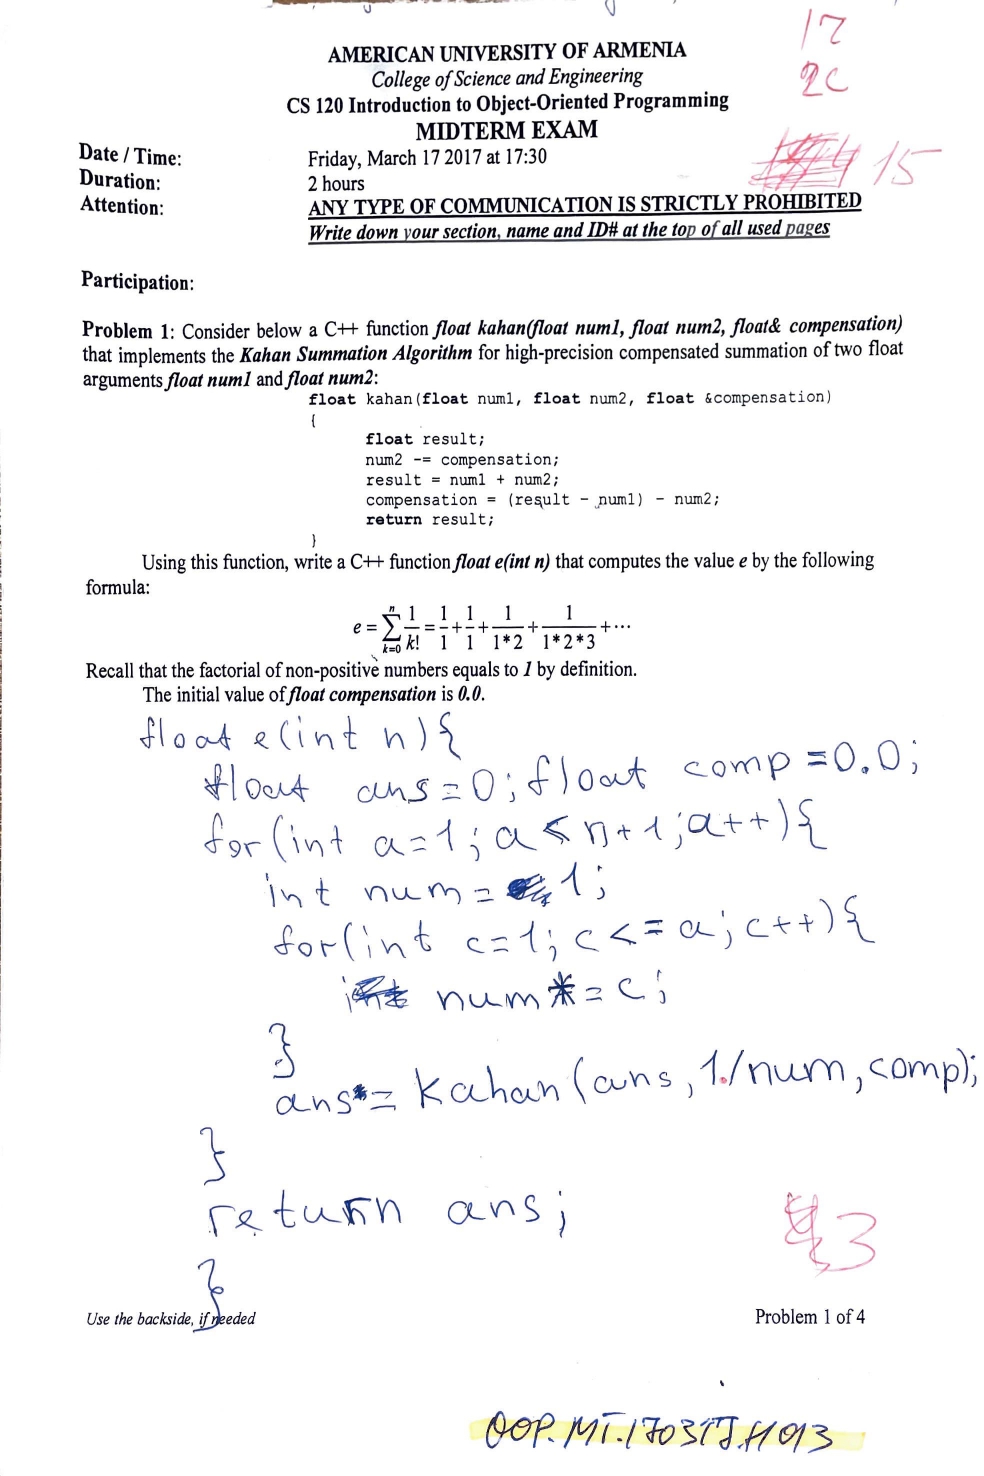 17
2C
AMERICAN UNIVERSITY OF ARMENIA
College of Science and Engineering
CS 120 Introduction to Object-Oriented Programming
MIDTERM EXAM
Date / Time: Friday, March 17 2017 at 17:30
Duration: 2 hours
15
Attention: ANY TYPE OF COMMUNICATION IS STRICTLY PROHIBITED
Write down your section, name and ID# at the top of all used pages
Participation:
Problem 1: Consider below a C++ function float kahan(float num1, float num2, float& compensation)
that implements the Kahan Summation Algorithm for high-precision compensated summation of two float
arguments float num1 and float num2:
float kahan(float num1, float num2, float &compensation)
{
float result;
num2 -= compensation;
result = num1 + num2;
compensation = (result - num1) - num2;
return result;
}
Using this function, write a C++ function float e(int n) that computes the value e by the following
formula:
e = ∑_{k=0}^{n} 1/k! = 1/1 + 1/1 + 1/1*2 + 1/1*2*3 + ⋯
Recall that the factorial of non-positive numbers equals to 1 by definition.
The initial value of float compensation is 0.0.
float e(int n){
float ans=0; float comp=0.0;
for(int a=1; a<n+1;a++){
int num= 1;
for(int c=1; c<=a; c++){
num*=c;
}
ans = kahan(ans, 1./num, comp);
}
return ans;
3
}
Use the backside, if needed Problem 1 of 4
OOP.MT.170317.H013